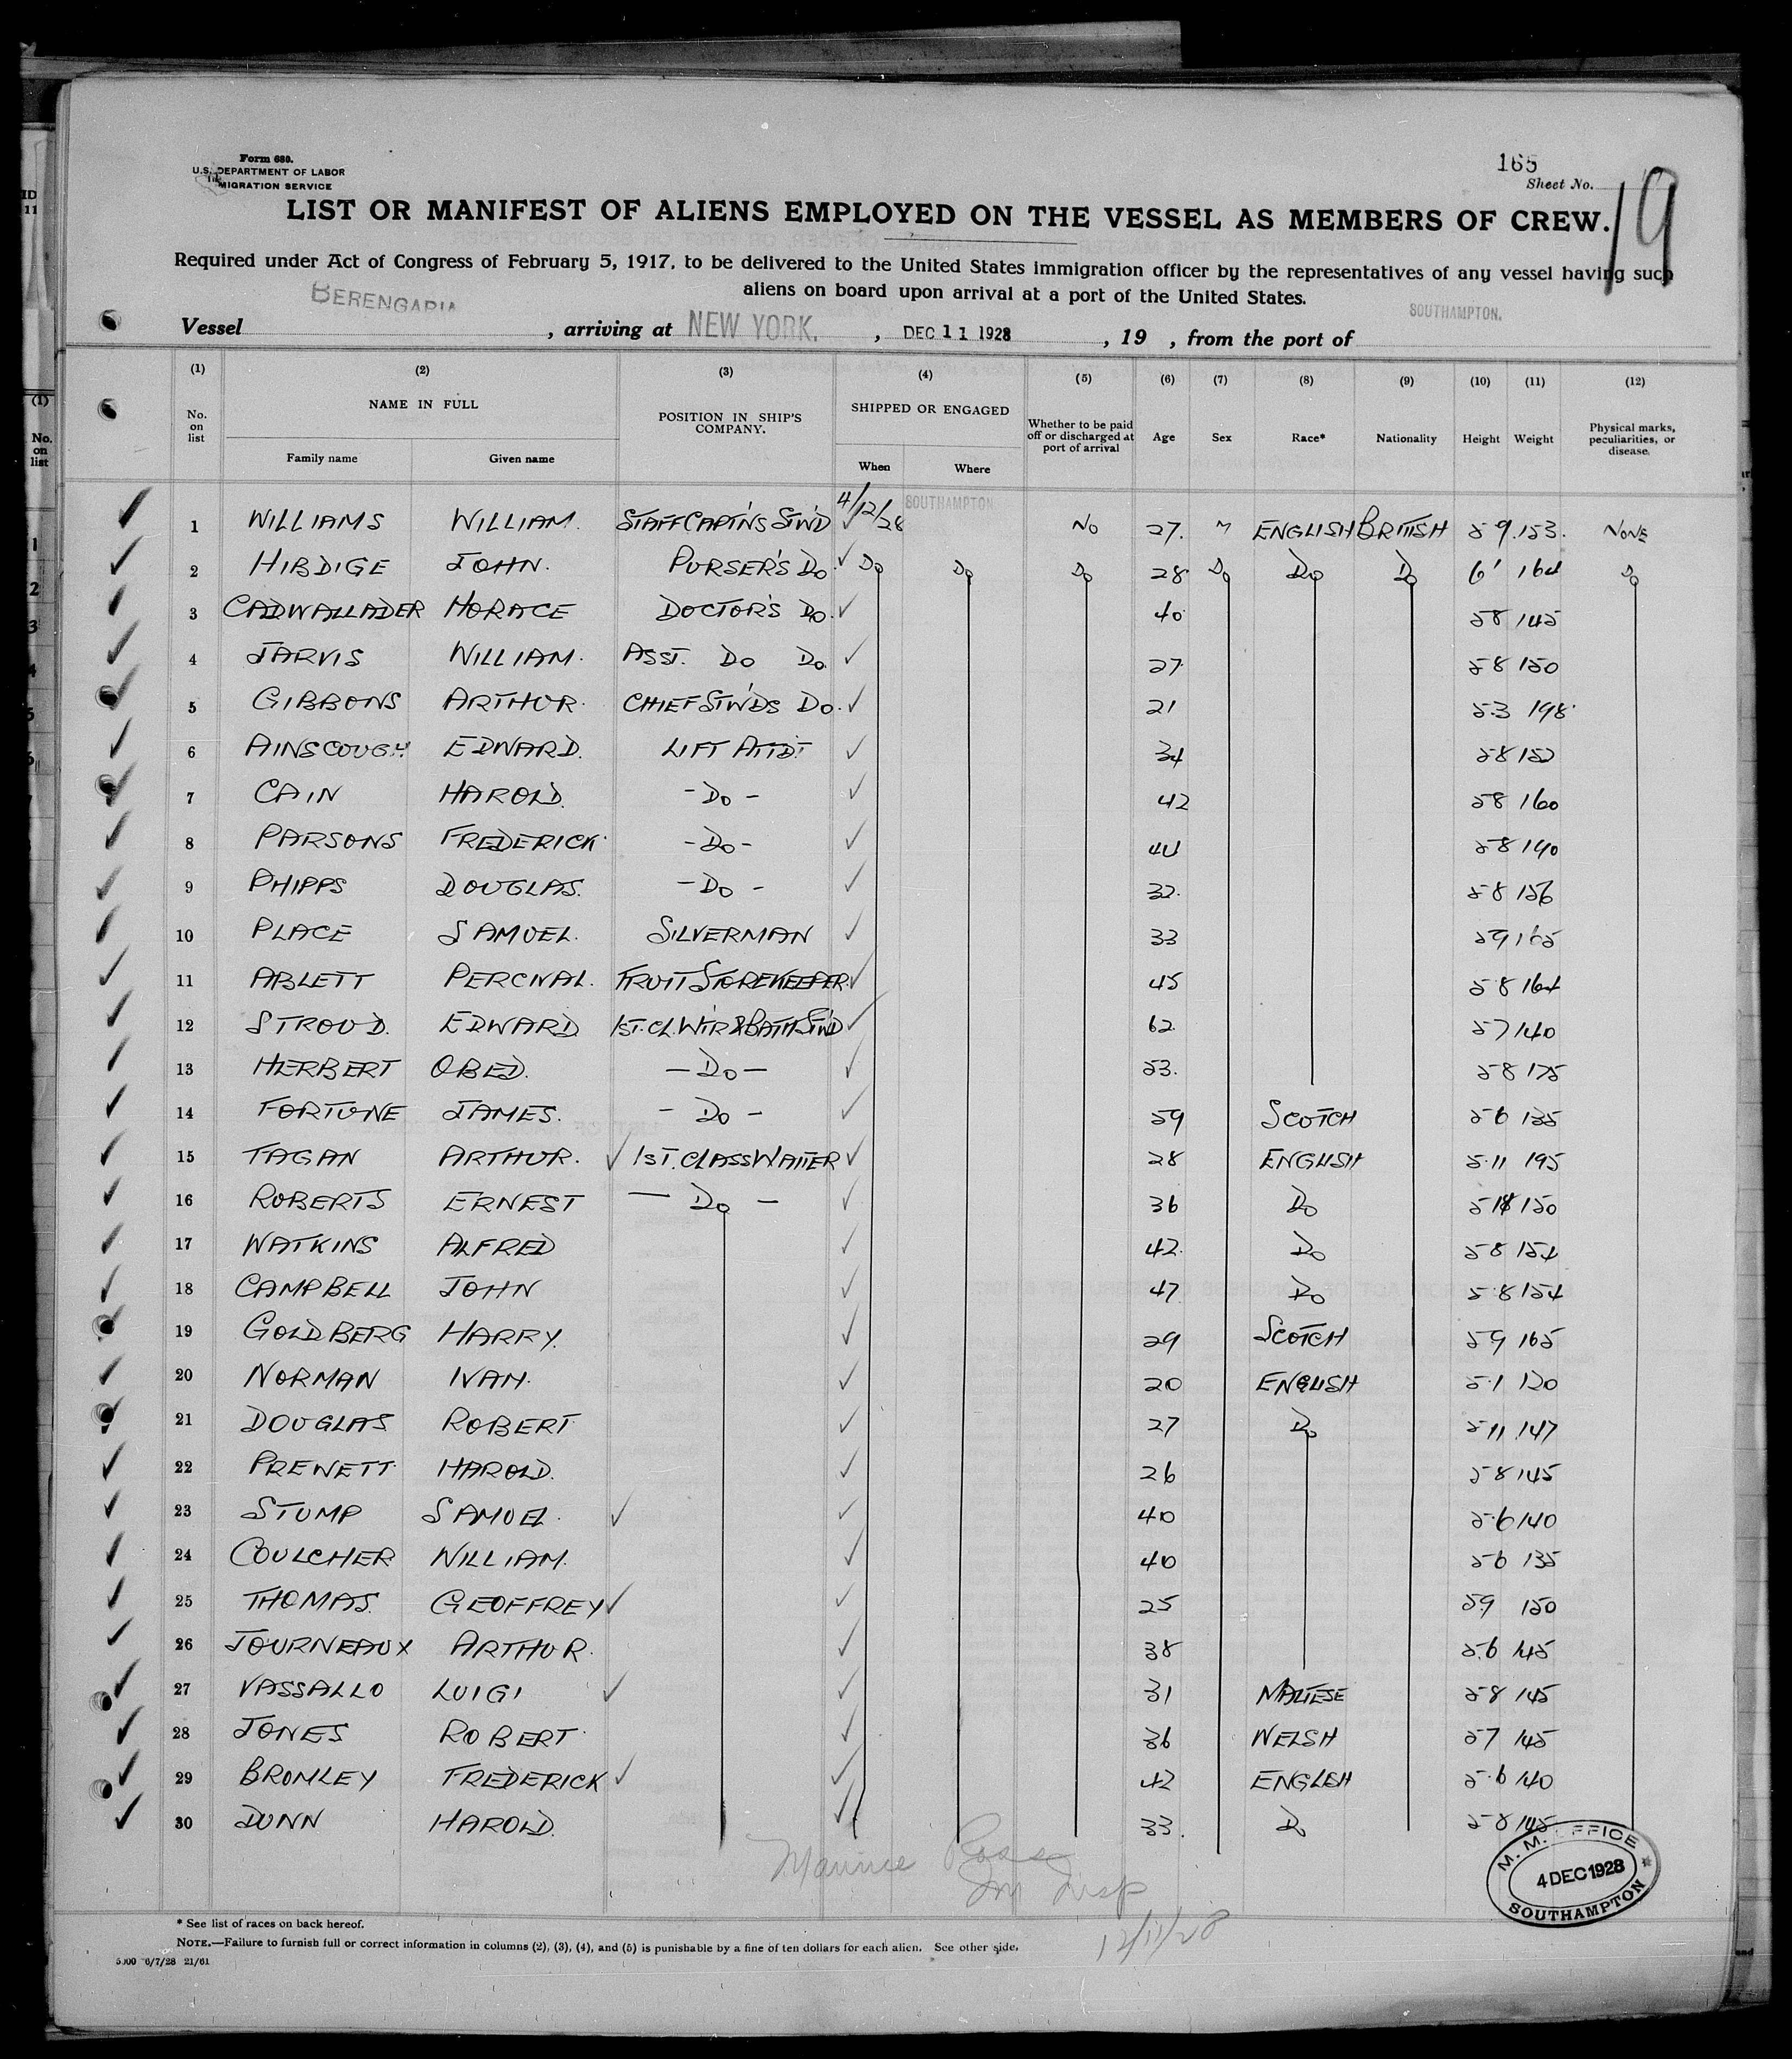 Form 680.
U.S. DEPARTMENT OF LABOR
IMMIGRATION SERVICE
165
Sheet No. 19
LIST OR MANIFEST OF ALIENS EMPLOYED ON THE VESSEL AS MEMBERS OF CREW.
Required under Act of Congress of February 5, 1917, to be delivered to the United States immigration officer by the representatives of any vessel having such
aliens on board upon arrival at a port of the United States.
Vessel BERENGARIA, arriving at NEW YORK., DEC 11 1928, 19 , from the port of SOUTHAMPTON.
(1) (2) (3) (4) (5) (6) (7) (8) (9) (10) (11) (12)
No. on list NAME IN FULL POSITION IN SHIP'S COMPANY. SHIPPED OR ENGAGED Whether to be paid off or discharged at port of arrival Age Sex Race* Nationality Height Weight Physical marks, peculiarities, or disease.
Family name Given name When Where
1 WILLIAMS WILLIAM. STAFF CAPT'NS STW'D 4/12/28 SOUTHAMPTON No 27. M ENGLISH BRITISH 5 9. 153. NONE
2 HIBDIGE JOHN. PURSER'S Do Do Do Do 28 Do Do Do 6' 164 Do
3 CADWALLADER HORACE DOCTOR'S Do. 40 58 145
4 JARVIS WILLIAM. ASST. Do Do. 27 58 150
5 GIBBONS ARTHUR. CHIEF STW'DS Do. 21 5.3 198
6 AINSCOUGH EDWARD. LIFT ATTDT 34 58 152
7 CAIN HAROLD. - Do - 42 58 160
8 PARSONS FREDERICK - Do - 44 58 190
9 PHIPPS DOUGLAS. - Do - 32. 58 156
10 PLACE SAMUEL. SILVERMAN 33 59 165
11 ABLETT PERCIVAL. FRUIT STOREKEEPER 45 58 164
12 STROUD. EDWARD 1ST. CL. WT'R & BATH STW'D 62 57 140
13 HERBERT OBED. - Do - 53. 58 175
14 FORTUNE JAMES. - Do - 59 SCOTCH 56 135
15 TAGAN ARTHUR. 1ST. CLASS WAITER 28 ENGLISH 5.11 195
16 ROBERTS ERNEST - Do - 36 Do 150
17 WATKINS ALFRED 42. Do 58 154
18 CAMPBELL JOHN 47 Do 58 154
19 GOLDBERG HARRY. 29 SCOTCH 59 165
20 NORMAN IVAN. 20 ENGLISH 5.1 120
21 DOUGLAS ROBERT 27 Do 5 11 147
22 PREWETT HAROLD. 26 58 145
23 STUMP SAMUEL. 40 5.6 140
24 COULCHER WILLIAM. 40 56 135
25 THOMAS. GEOFFREY 25 59 150
26 JOURNEAUX ARTHUR. 38 5.6 145
27 VASSALLO LUIGI 31 MALTESE 58 145
28 JONES ROBERT 36 WELSH 57 145
29 BROMLEY FREDERICK 42 ENGLISH 5.6 140
30 DUNN HAROLD. 33. Do 58 145
Maurice Ross
Im Insp
12/11/28
M. M. OFFICE
4 DEC 1928
SOUTHAMPTON
* See list of races on back hereof.
NOTE.—Failure to furnish full or correct information in columns (2), (3), (4), and (5) is punishable by a fine of ten dollars for each alien. See other side.
5000 6/7/28 21/61